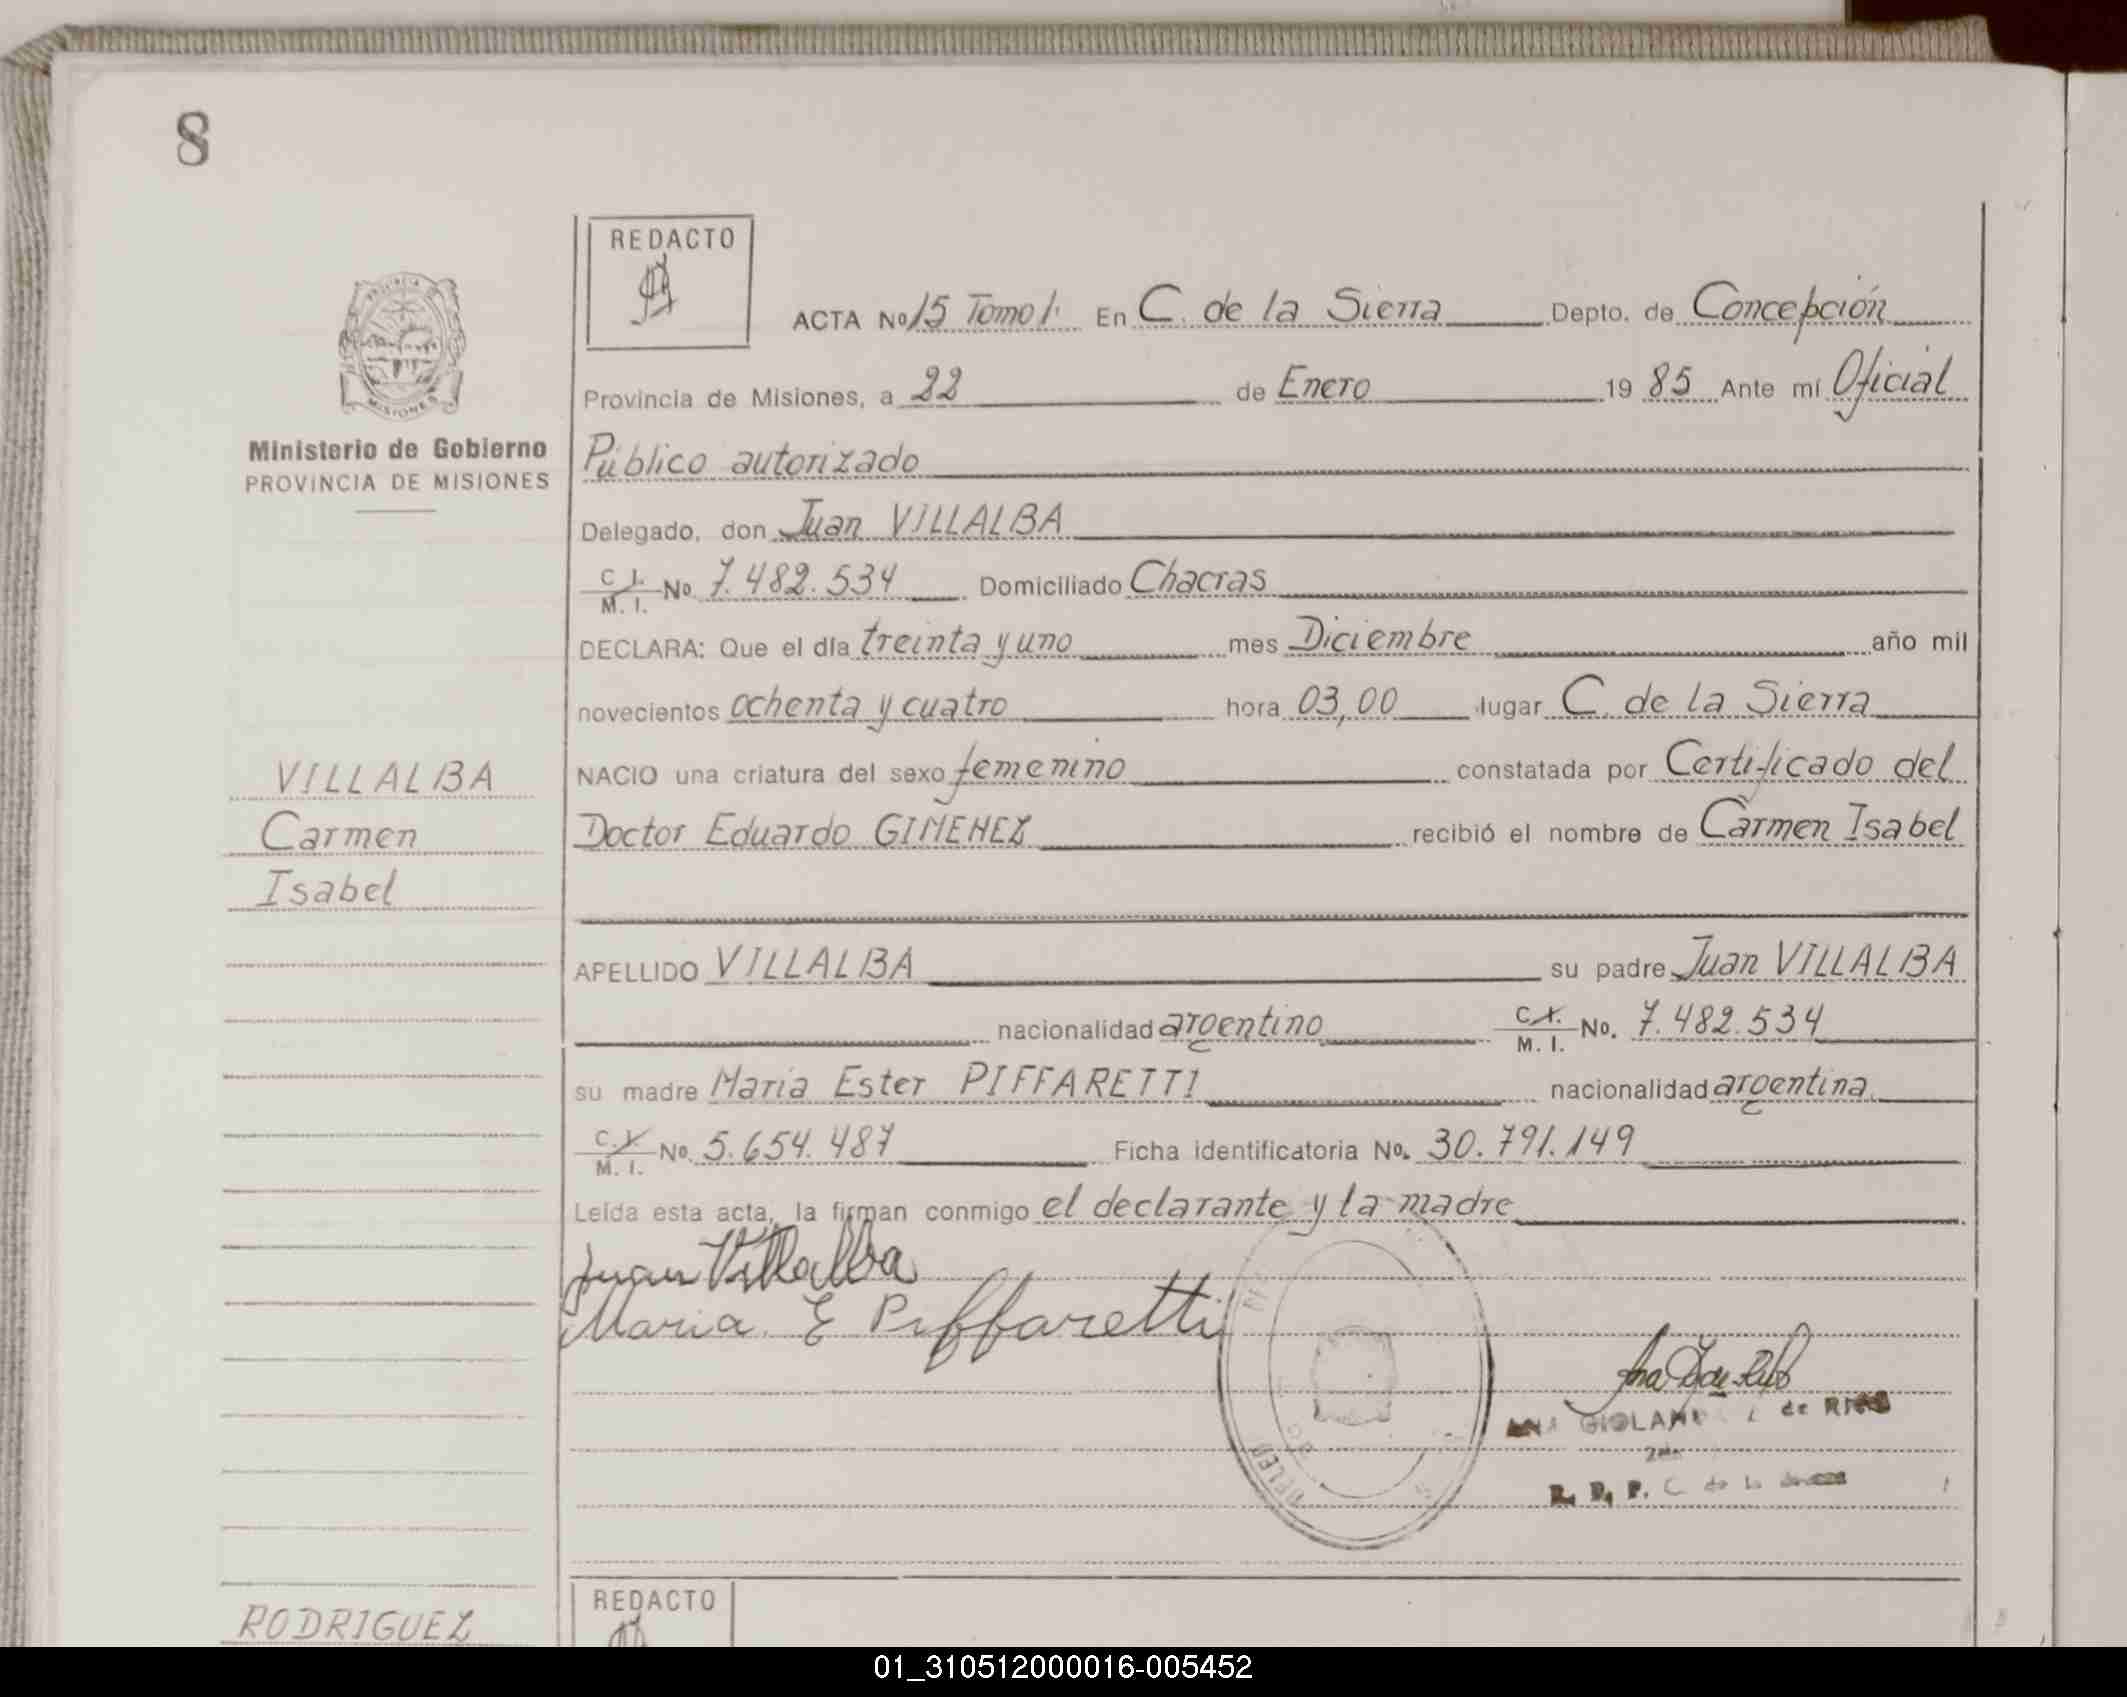 8
REDACTO
ACTA Nº 15 Tomo 1. En C. de la Sierra Depto. de Concepción
Provincia de Misiones, a 22 de Enero 19 85 Ante mí Oficial
Ministerio de Gobierno
PROVINCIA DE MISIONES
Público autorizado
Delegado, don Juan VILLALBA
C. I. M. I. No 7.482.534 Domiciliado Chacras
DECLARA: Que el día treinta y uno mes Diciembre año mil
novecientos ochenta y cuatro hora 03,00 lugar C. de la Sierra
VILLALBA
Carmen
Isabel
NACIO una criatura del sexo femenino constatada por Certificado del
Doctor Eduardo GIMENEZ recibió el nombre de Carmen Isabel
APELLIDO VILLALBA su padre Juan VILLALBA
nacionalidad argentino C. I. M. I. No. 7.482.534
su madre Maria Ester PIFFARETTI nacionalidad argentina
C. I. M. I. No. 5.654.487 Ficha identificatoria No. 30.791.149
Leída esta acta, la firman conmigo el declarante y la madre
Juan Villalba
Maria E Piffaretti
ANA de
R. P. C de la
REDACTO
RODRIGUEZ
01_310512000016-005452